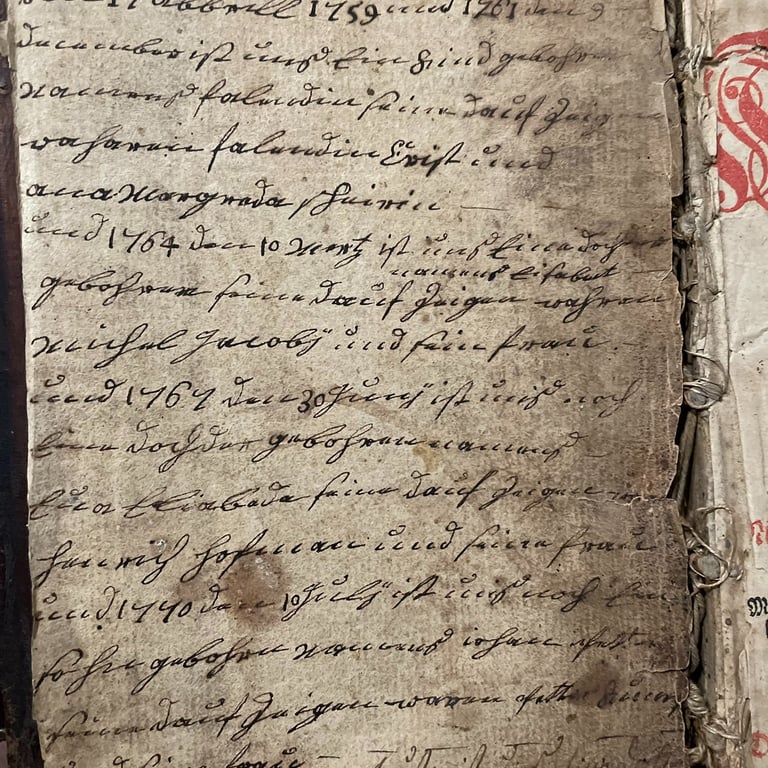 17 abbrill 1759 und 1761 den 9
december ist uns Ein Kind gebohren
namens falendin seine dauf Zeigen
waharen falendin Crist und
ana Margreda
und 1764 den 10 Mertz ist uns Eine dochter
namens Elisabet
gebohren seine dauf Zeigen wahren
Michel Jacoby und sein frau
und 1767 den 30 Juny ist uns noch
Eine dochder gebohren namens
Eva Eliabeda seine dauf Zeigen
henrich hofman und seine frau
und 1770 den 10 July ist uns noch Ein
sohn gebohren namens iohan petter
seine dauf Zeigen waren petter
und seine frau